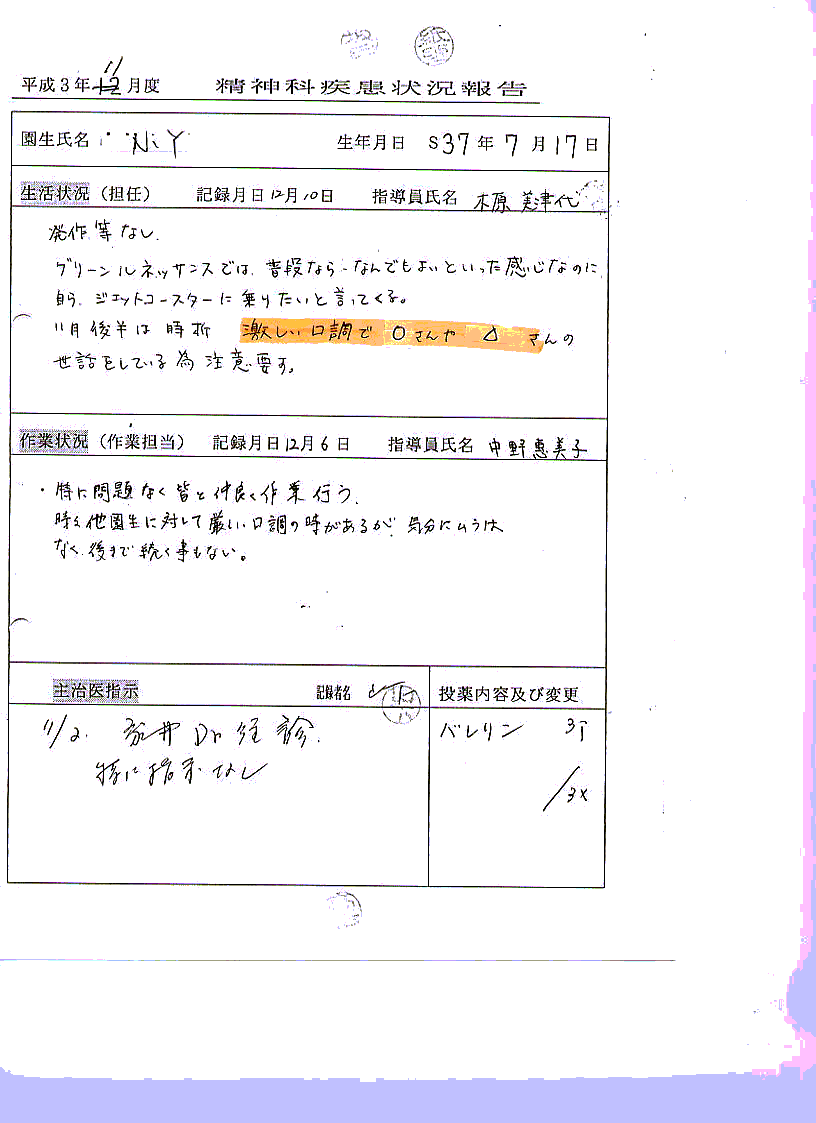 平成3年12月度 11 精神科疾患状況報告
園生氏名 N.Y 生年月日 S37年7月17日
生活状況（担任） 記録月日12月10日 指導員氏名 木原美津代
発作等なし.
グリーンルネッサンスでは、普段なら、なんでもよいといった感じなのに
自ら、ジェットコースターに乗りたいと言ってくる。
11月後半は時折 激しい口調で ○さんや △ さんの
世話をしている為注意要す。
作業状況（作業担当） 記録月日12月6日 指導員氏名 中野恵美子
・特に問題なく皆と仲良く作業行う.
時々他園生に対して厳しい口調の時があるが 気分にムラは
なく、後まで続く事もない。
主治医指示 記録者名
投薬内容及び変更
11/2. Dr 診.
特に指示なし
バレリン 3T
/3X